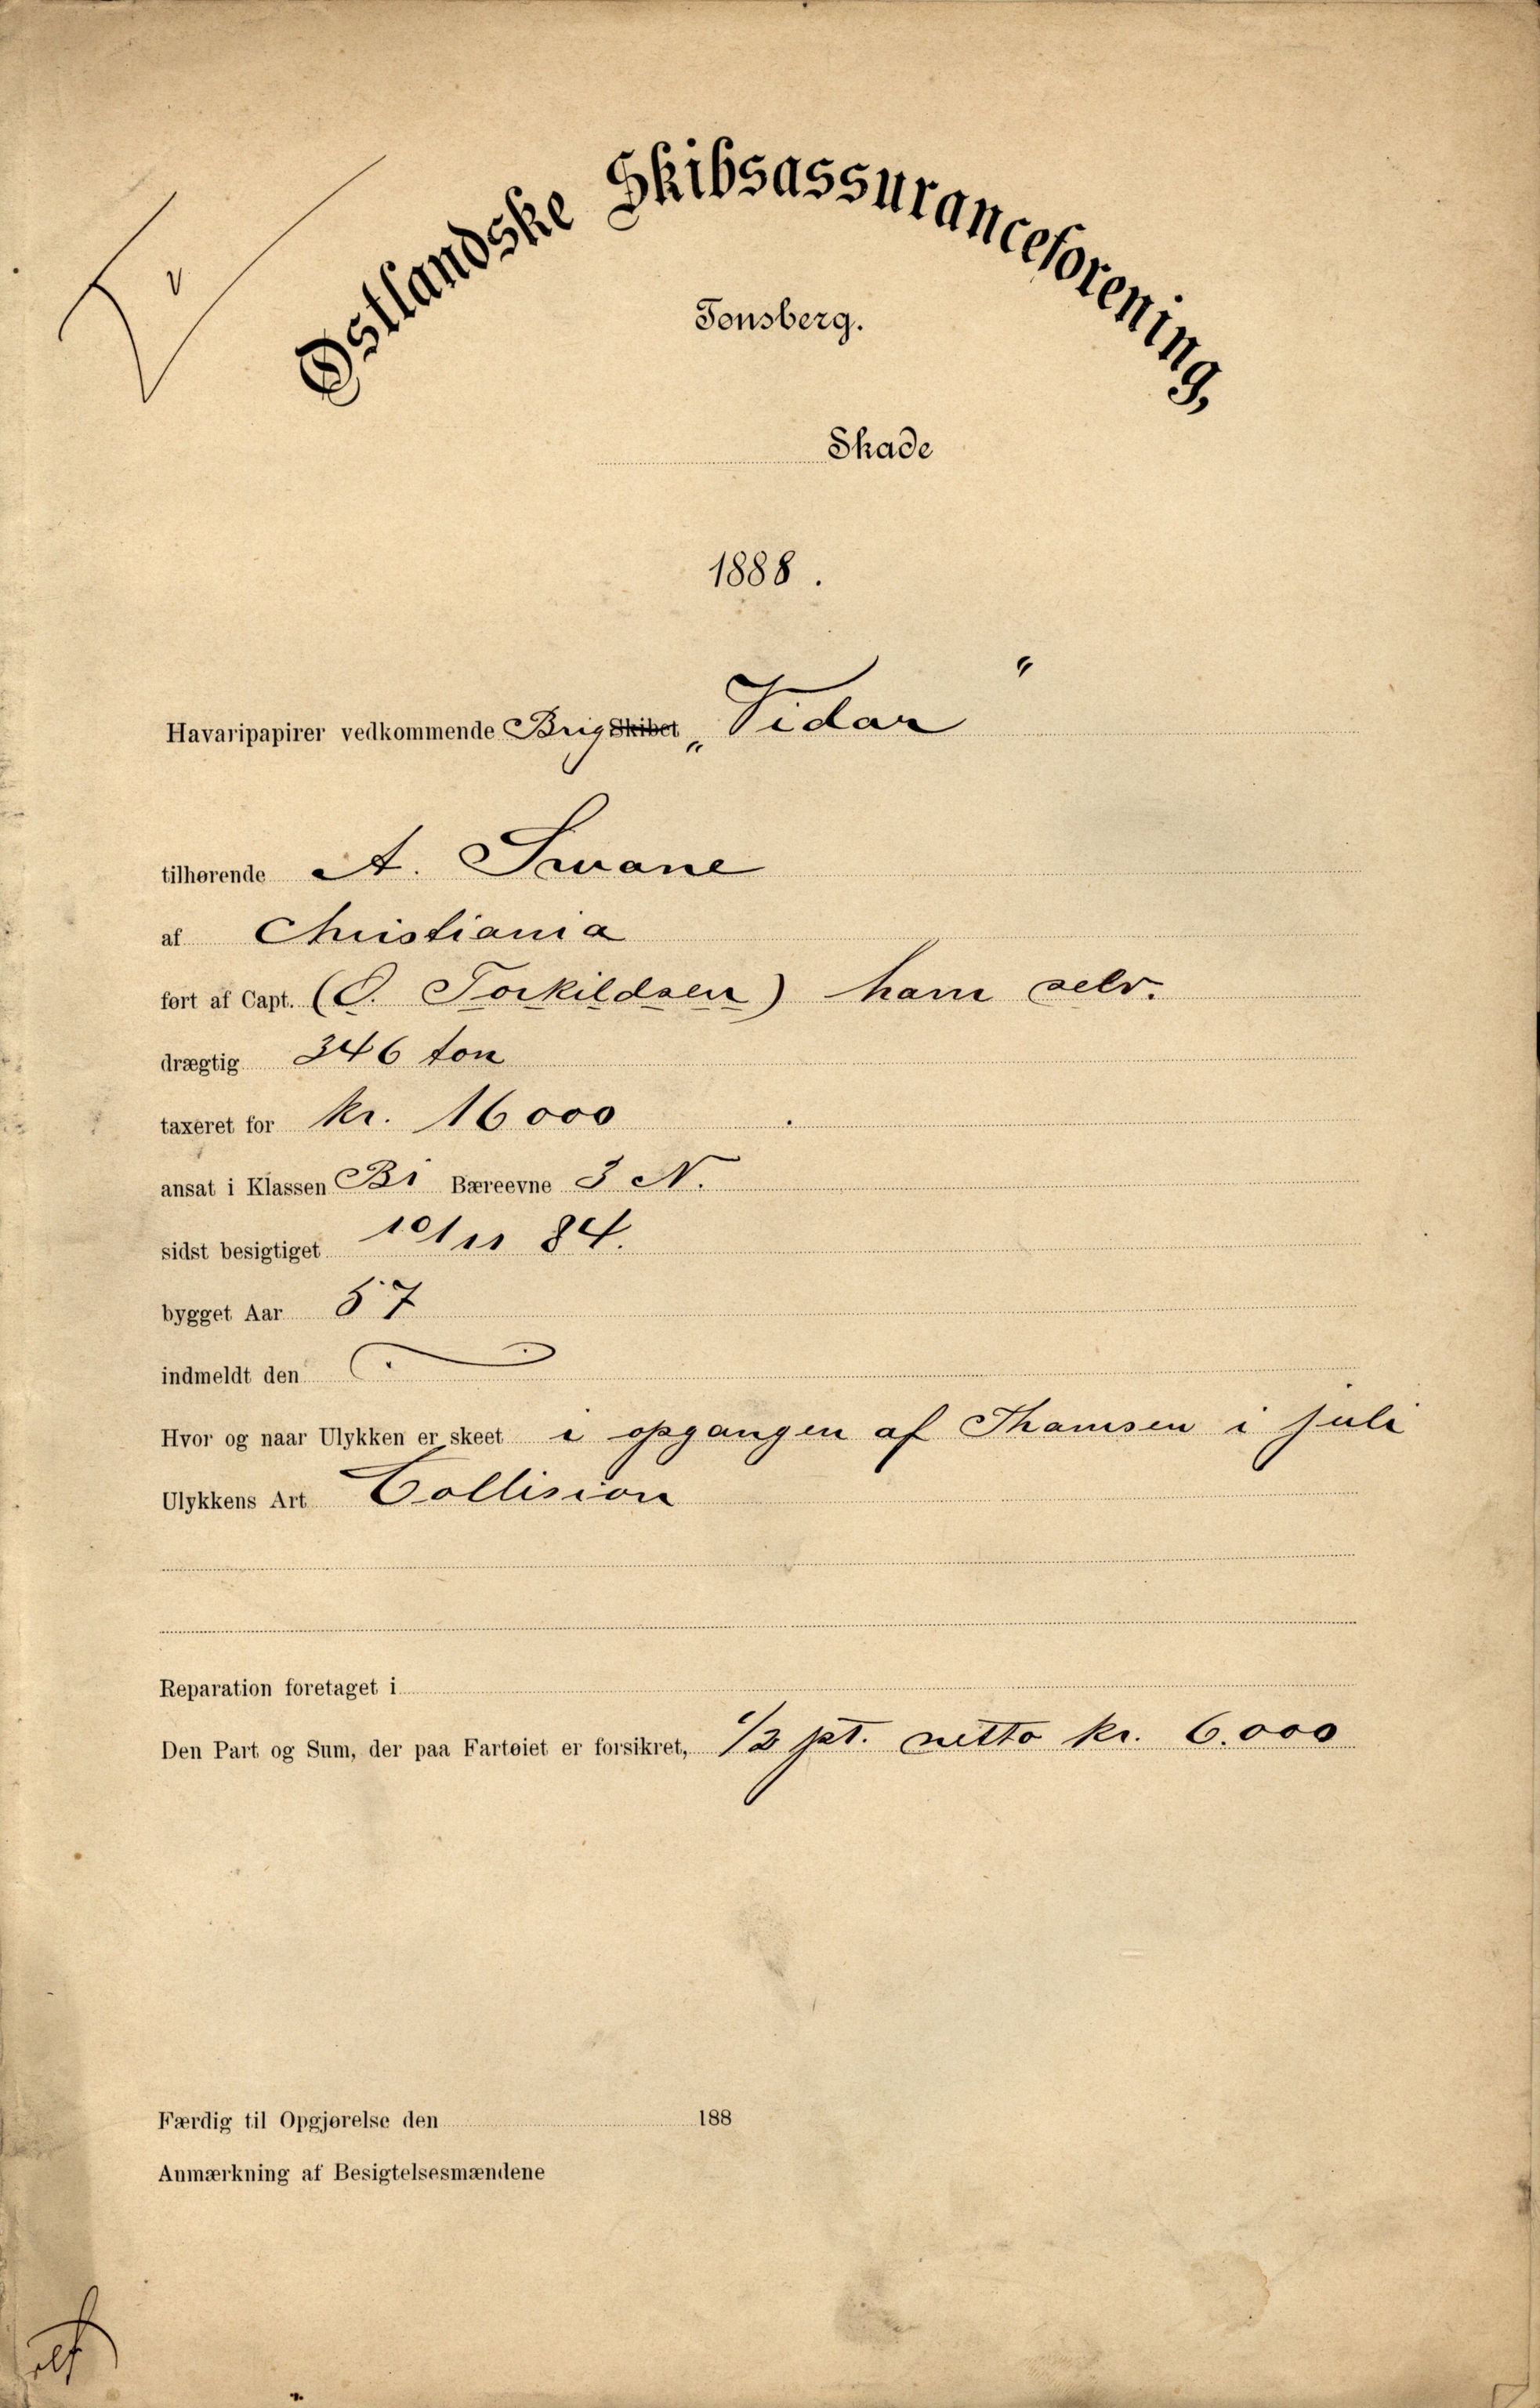 Østlandske Skibsassuranceforening,
Tønsberg.
Skade
1888.
Havaripapirer vedkommende Brig Skibet „Vidar"
tilhørende A. Swane
af Christiania
ført af Capt. (O. Torkildsen) ham selv.
drægtig 346 ton
taxeret for kr. 16000
ansat i Klassen B1 Bæreevne 3 N.
sidst besigtiget 10/11 84.
bygget Aar 57
indmeldt den
Hvor og naar Ulykken er skeet i opgangen af Thamsen i juli
Ulykkens Art Collision
Reparation foretaget i
Den Part og Sum, der paa Fartøiet er forsikret, 1/2 pt. netto kr. 6.000
Færdig til Opgjørelse den 188
Anmærkning af Besigtelsesmændene